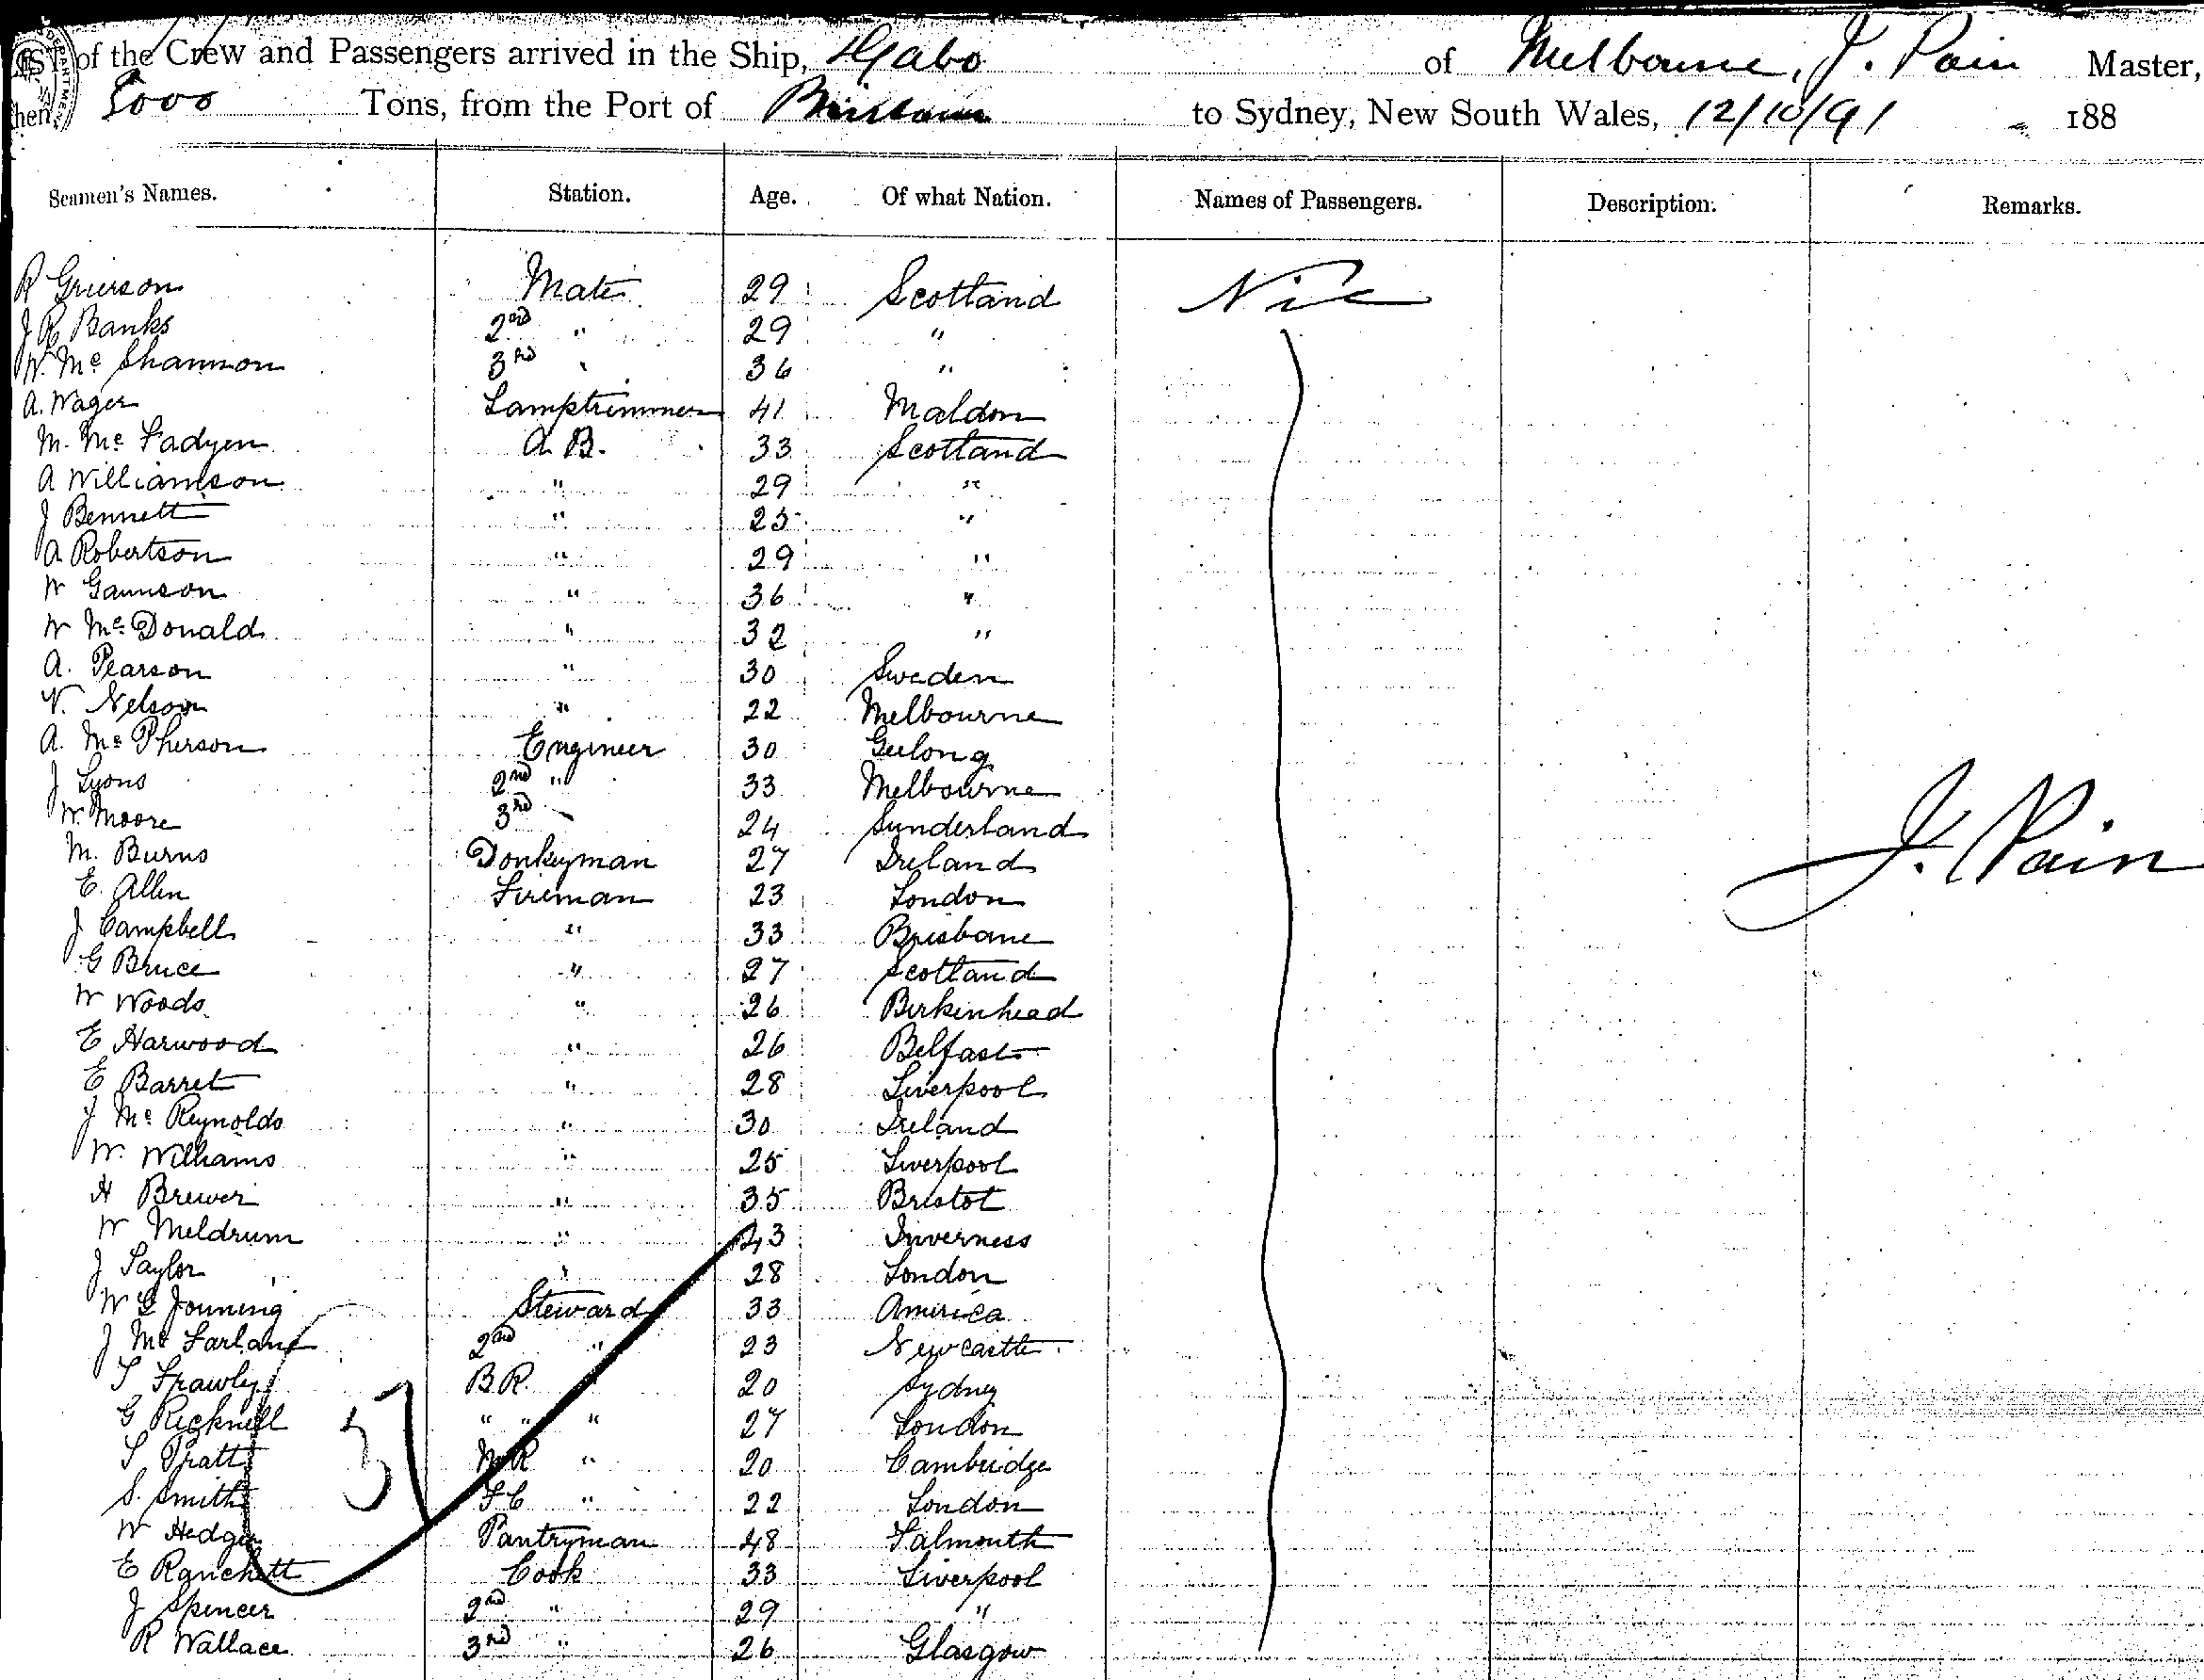 LIST of the Crew and Passengers arrived in the Ship, Gabo of Melbourne, J. Pain Master,
Tons, from the Port of Brisbane to Sydney, New South Wales, 12/10/91 188
Seamen's Names. Station. Age. Of what Nation. Names of Passengers. Description. Remarks.
R Grierson Mate 29 Scotland Nil
J R Banks 2nd " 29 "
W. Mc Shannon 3rd " 36 "
A. Wager Lamptrimmer 41 Maldon
M. Mc Fadyen A. B. 33 Scotland
A Williamson " 29 "
J Bennett " 25 "
A Robertson " 29 "
W Gannson " 36 "
W Mc Donald " 32 "
A. Pearson " 30 Sweden
N. Nelson " 22 Melbourne
A. Mc Pherson Engineer 30 Geelong
J Lyons 2nd " 33 Melbourne
W. Moore 3rd " 24 Sunderland
M. Burns Donkeyman 27 Ireland
J. Pain
E. Allen Fireman 23 London
J Campbell " 33 Brisbane
G Bruce " 27 Scotland
W Woods " 26 Birkenhead
E Harwood " 26 Belfast
E Barret " 28 Liverpool
J Mc Reynolds " 30 Ireland
W. Williams " 25 Liverpool
H Brewer " 35 Bristol
W Meldrum " 43 Inverness
J Taylor " 28 London
W G Jouning Steward 33 America
J Mc Farlane 2nd " 23 Newcastle
T Frawley B.R. " 20 Sydney
G Ricknell " " " 27 London
T Pratt M R " 20 Cambridge
S. Smith F C " 22 London
W Hedger Pantryman 48 Falmouth
E Ranchett Cook 33 Liverpool
J Spencer 2nd " 29 "
R Wallace 3rd " 26 Glasgow
37